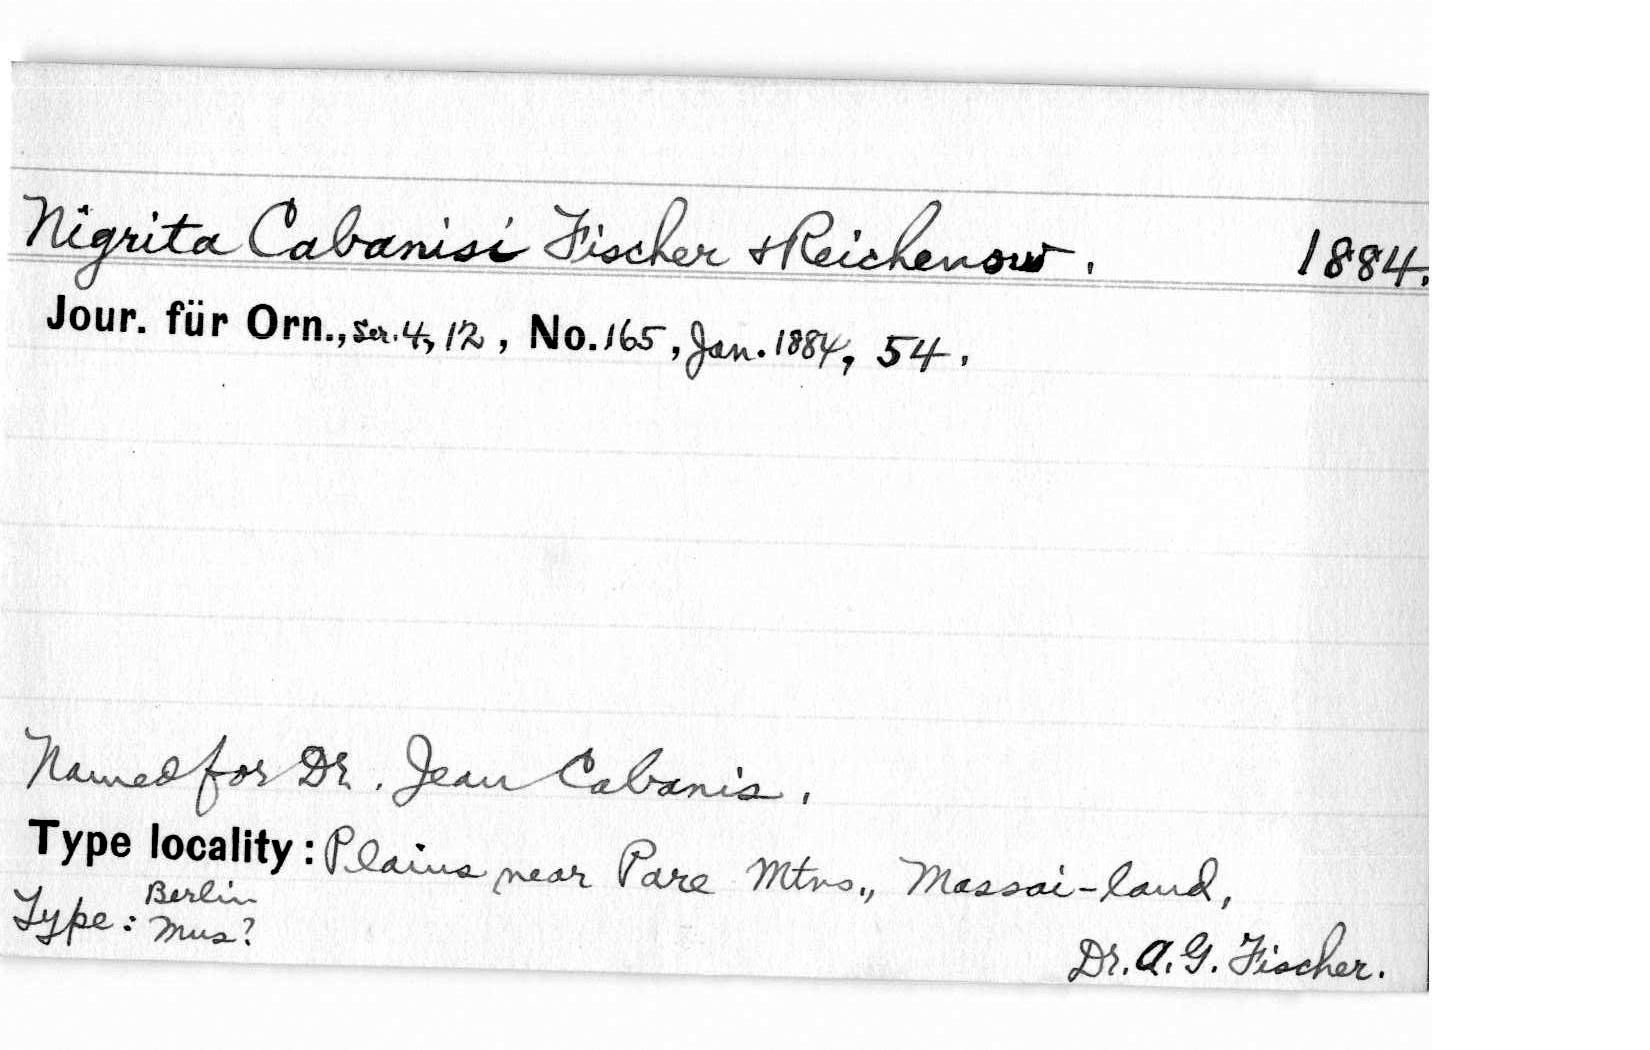 Nigrita Cabanisi Fischer & Reichenow. 1884.
Jour. für Orn., Ser. 4, 12, No. 165, Jan. 1884, 54.
Named for Dr. Jean Cabanis.
Type locality: Plains near Pare Mtns., Massai-land,
Type: Berlin Mus?
Dr. A. G. Fischer.